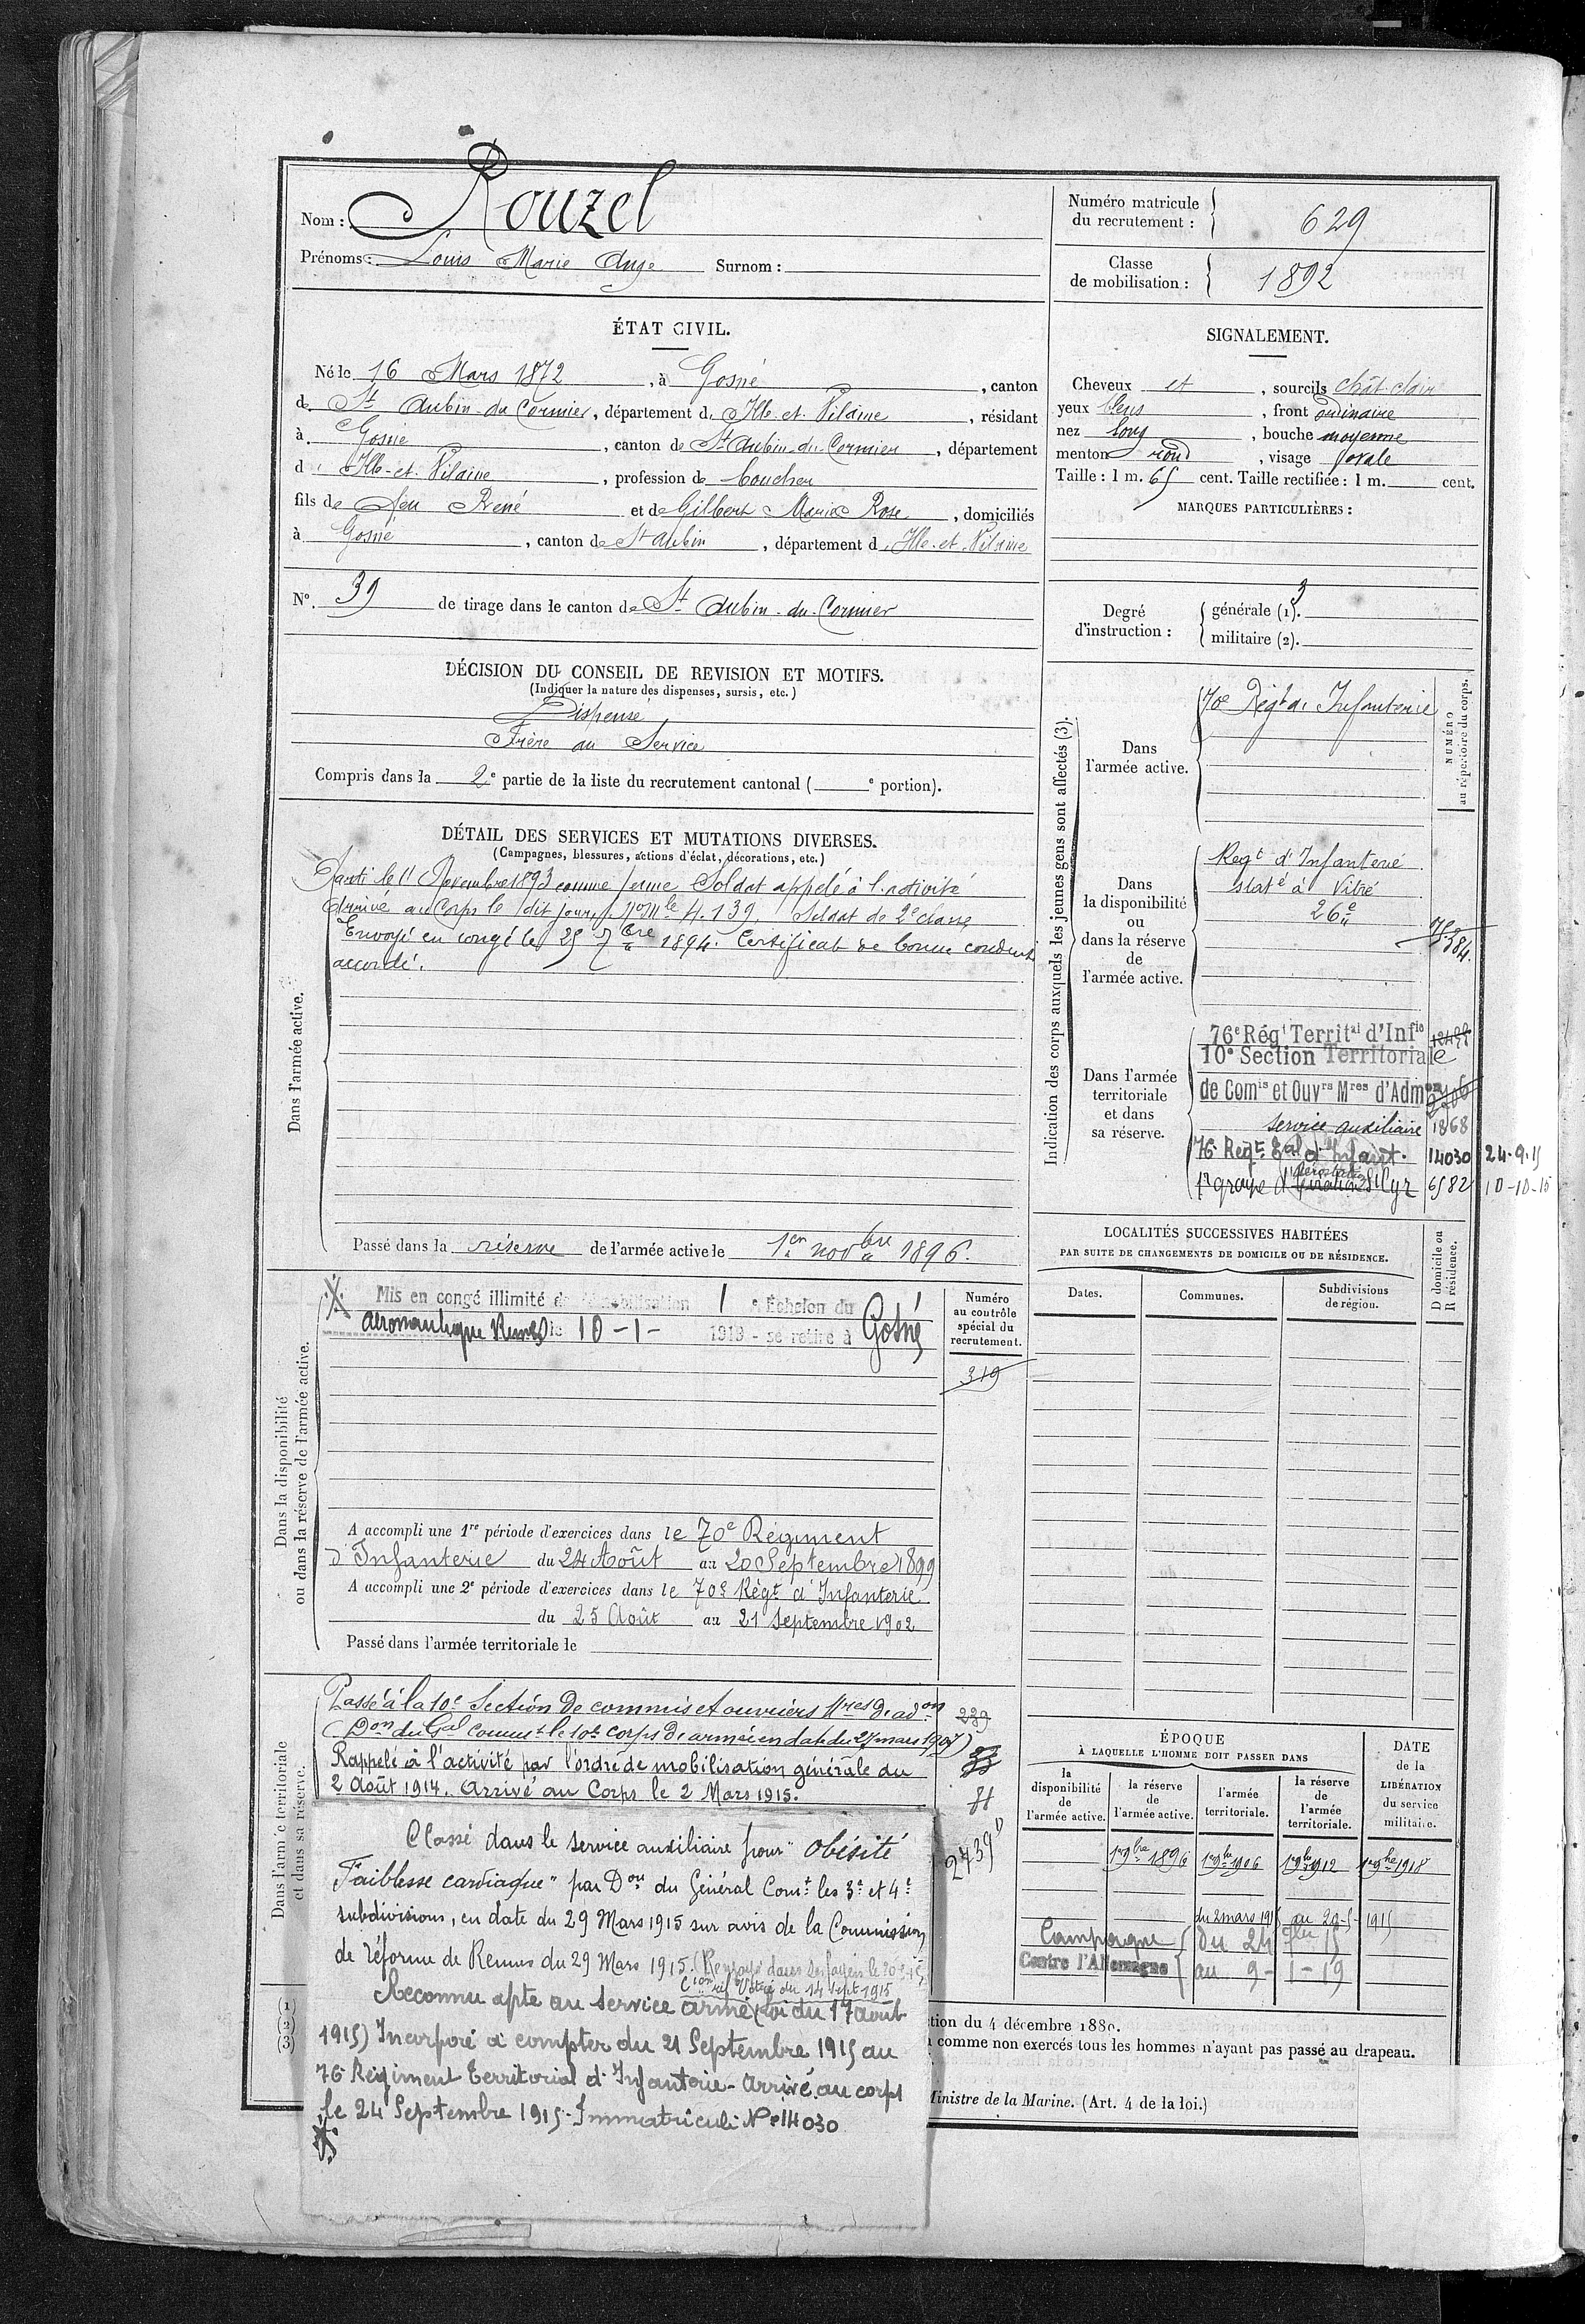 Nom : Rouzel
Prénoms : Louis Marie Ange Surnom :
Numéro matricule
du recrutement : 629
Classe
de mobilisation : 1892
ÉTAT CIVIL.
Né le 16 Mars 1872, à Gosné, canton
de St Aubin-du-Cormier, département d Ille-et-Vilaine, résidant
à Gosné, canton de St Aubin-du-Cormier, département
d Ille-et-Vilaine, profession de boucher
fils de feu René et de Gilbert Marie Rose, domiciliés
à Gosné, canton de St Aubin, département d Ille-et-Vilaine
No. 39 de tirage dans le canton de St Aubin-du-Cormier
SIGNALEMENT.
Cheveux et, sourcils chât-clair
yeux bleus, front ordinaire
nez long, bouche moyenne
menton rond, visage ovale
Taille : 1 m. 65 cent. Taille rectifiée : 1 m. cent.
MARQUES PARTICULIÈRES :
Degré
d'instruction :
générale (1). 3
militaire (2).
DÉCISION DU CONSEIL DE REVISION ET MOTIFS.
(Indiquer la nature des dispenses, sursis, etc.)
Dispensé
Frère au Service
Compris dans la 2e partie de la liste du recrutement cantonal ( e portion).
DÉTAIL DES SERVICES ET MUTATIONS DIVERSES.
(Campagnes, blessures, actions d'éclat, décorations, etc.)
Dans l'armée active.
Parti le 11 Novembre 1893 comme jeune Soldat appelé à l'activité
Arrivé au Corps le dit jour, No Mle 4.139. Soldat de 2e classe
Envoyé en congé le 25 7bre 1894. Certificat de bonne conduite
accordé.
Passé dans la réserve de l'armée active le 1er novbre 1896.
Indication des corps auxquels les jeunes gens sont affectés (3).
NUMÉRO
au répertoire du corps.
Dans
l'armée active.
70e Régt d'Infanterie
Dans
la disponibilité
ou
dans la réserve
de
l'armée active.
Regt d'Infanterie
staté à Vitré
26e
Dans l'armée
territoriale
et dans
sa réserve.
76e Régt Territal d'Infie
10e Section Territoriale
de Comis et Ouvrs Mres d'Admon
service auxiliaire 1868
76 Regt Tal d'Infant. 14030 24-9-15
1er groupe d'Aérostation St Cyr 6582 10-10-15
LOCALITÉS SUCCESSIVES HABITÉES
PAR SUITE DE CHANGEMENTS DE DOMICILE OU DE RÉSIDENCE.
D domicile ou
R résidence.
Dates.
Communes.
Subdivisions
de région.
Dans la disponibilité
ou dans la réserve de l'armée active.
Mis en congé illimité de démobilisation 1 e Échelon du
Aéronautique Rennes le 10-1- 1919 - se retire à Gosné
Numéro
au contrôle
spécial du
recrutement.
319
A accompli une 1re période d'exercices dans le 70e Régiment
d'Infanterie du 24 Août au 20 Septembre 1899
A accompli une 2e période d'exercices dans le 70e Régt d'Infanterie
du 25 Août au 21 Septembre 1902
Passé dans l'armée territoriale le
Dans l'armée territoriale
et dans sa réserve.
Passé à la 10e Section de commis et ouvriers Mres d'adon 239
(Don du Gal commt le 10e corps d'armée en date du 27 mars 1907)
Rappelé à l'activité par l'ordre de mobilisation générale du
2 Août 1914. Arrivé au Corps le 2 Mars 1915.
Classé dans le service auxiliaire pour "Obésité
Faiblesse cardiaque" par Don du Général Comt les 3e et 4e
subdivisions, en date du 29 Mars 1915 sur avis de la Commission
de réforme de Rennes du 29 Mars 1915. (Renvoyé dans ses foyers le
Con ref Vitré du 14 Sept 1915
Reconnu apte au service armé (Loi du 17 août
1915) Incorporé à compter du 21 Septembre 1915 au
76 Régiment Territorial d'Infanterie - Arrivé au corps
le 24 Septembre 1915 - Immatriculé No 14030
ÉPOQUE
À LAQUELLE L'HOMME DOIT PASSER DANS
la
disponibilité
de
l'armée active.
la réserve
de
l'armée active.
l'armée
territoriale.
la réserve
de
l'armée
territoriale.
DATE
de la
LIBÉRATION
du service
militaire.
1er 9bre 1896 1er 9bre 1906 1er 9bre 1912 1er 9bre 1918
du 2 mars 1915 au 29-5-1915
Campagne du 24 7bre 15
Contre l'Allemagne au 9-1-19
(1)
(2)
(3)
tion du 4 décembre 1889.
comme non exercés tous les hommes n'ayant pas passé au drapeau.
Ministre de la Marine. (Art. 4 de la loi.)